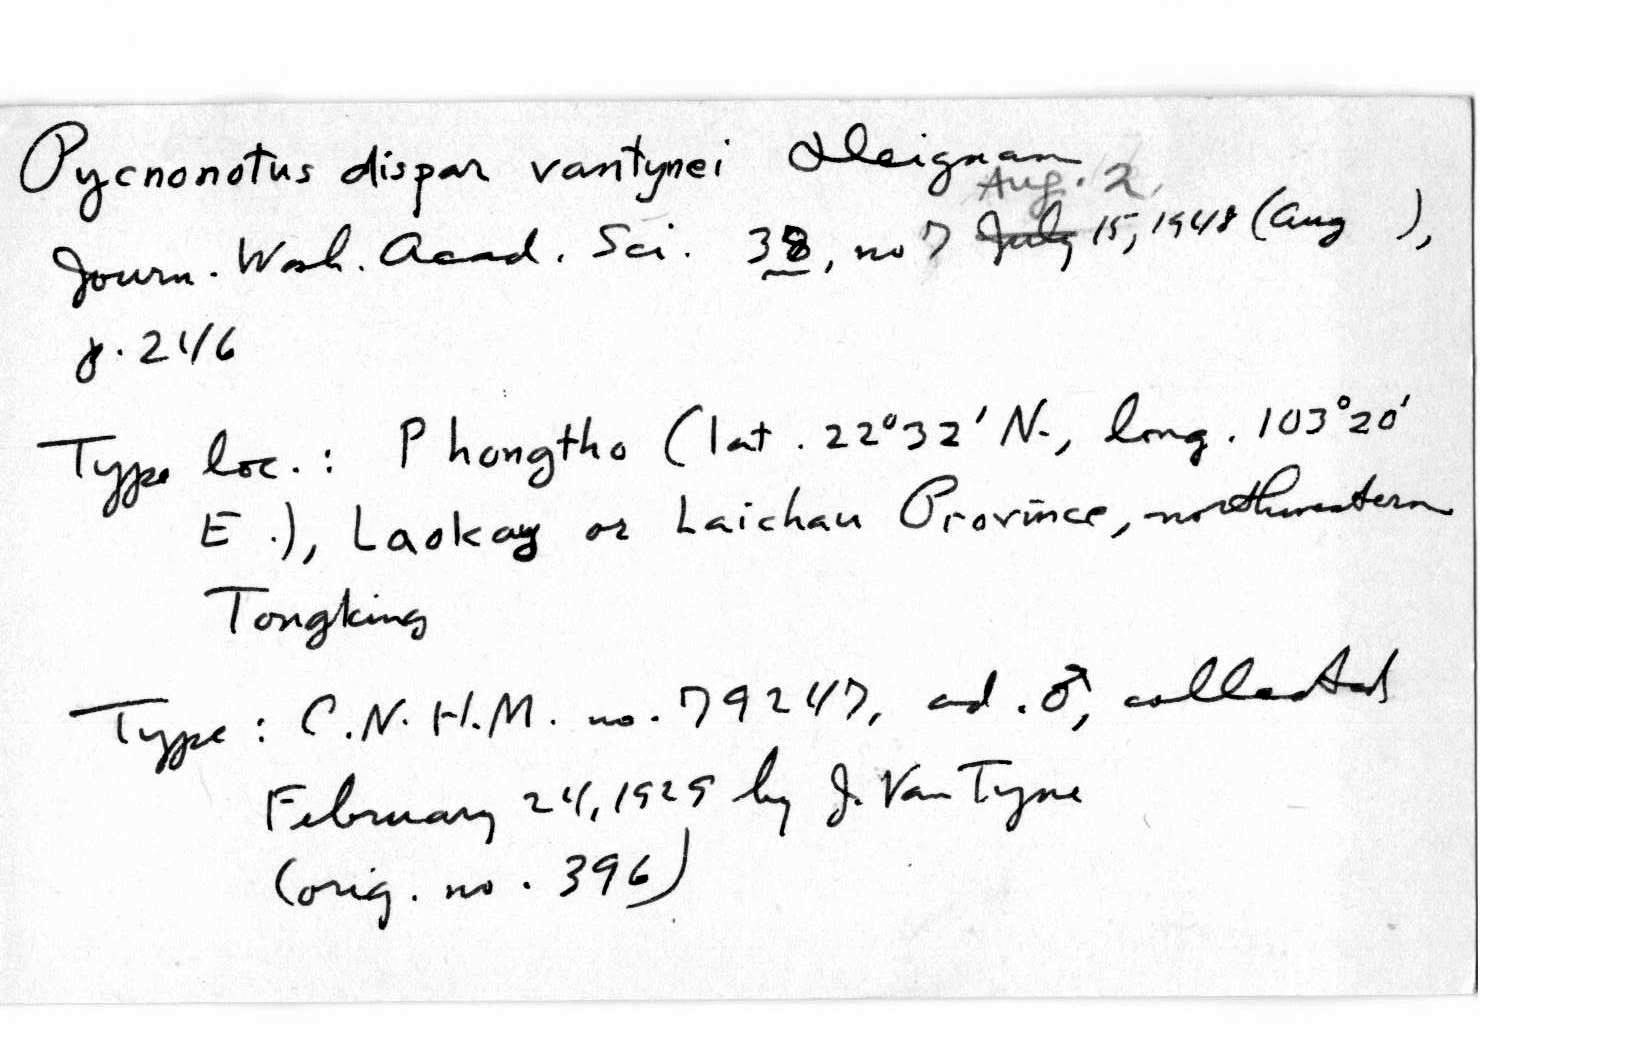 Pycnonotus dispar vantynei Deignan
Aug. 2,
Journ. Wash. Acad. Sci. 38, no 7 July 15, 1948 (Aug ),
p. 246
Type loc.: Phongtho (lat. 22°32' N., long. 103°20'
E.), Laokay or Laichau Province, northwestern
Tongking
Type: C.N.H.M. no. 79247, ad. ♂, collected
February 24, 1929 by J. Van Tyne
(orig. no. 396)